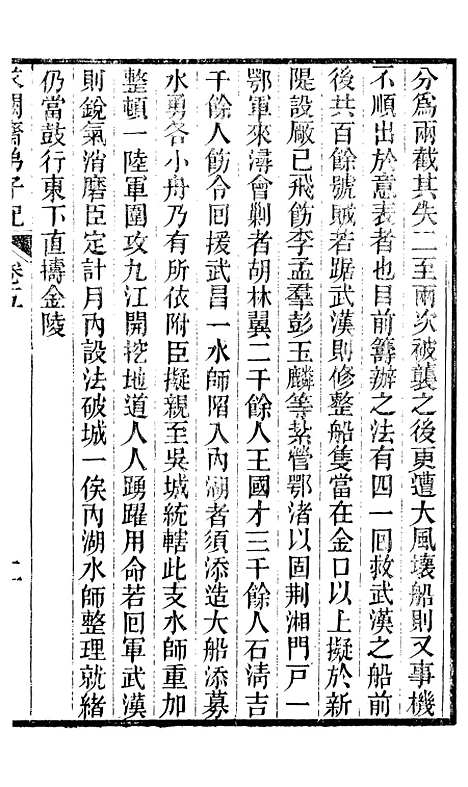 分爲兩截其失二至兩次被襲之後更遭大風壞船則又事機
不順出於意表者也目前籌辦之法有四一囘救武漢之船前
後共百餘號賊若踞武漢則修整船隻當在金口以上擬於新
隄設厰已飛飭李孟羣彭玉麟等紮營鄂渚以固荆湘門戸一
鄂軍來潯會剿者胡林翼二千餘人王國才三千餘人石淸吉
千餘人飭令囘援武昌一水師陷入內湖者須添造大船添募
水勇各小舟乃有所依附臣擬親至吳城統轄此支水師重加
整頓一陸軍圍攻九江開挖地道人人踴躍用命若囘軍武漢
則銳氣消磨臣定計月內設法破城一俟內湖水師整理就緒
仍當鼓行東下直擣金陵
求闕齋弟子記 卷五 二